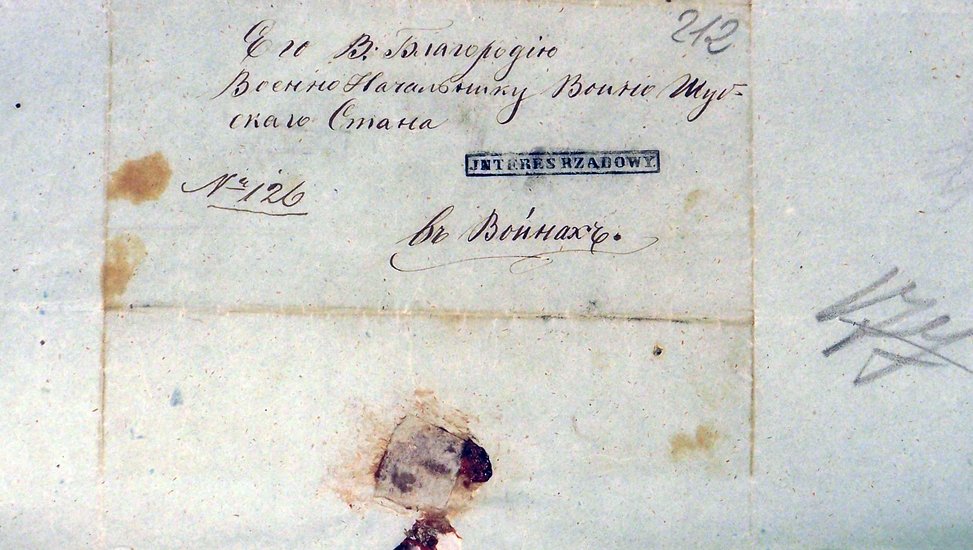 212
Его В. Благородію
Военно Начальнику Войно Шуб-
скаго Стана
JNTERES RZĄDOWY.
№ 126
въ Войнахъ.